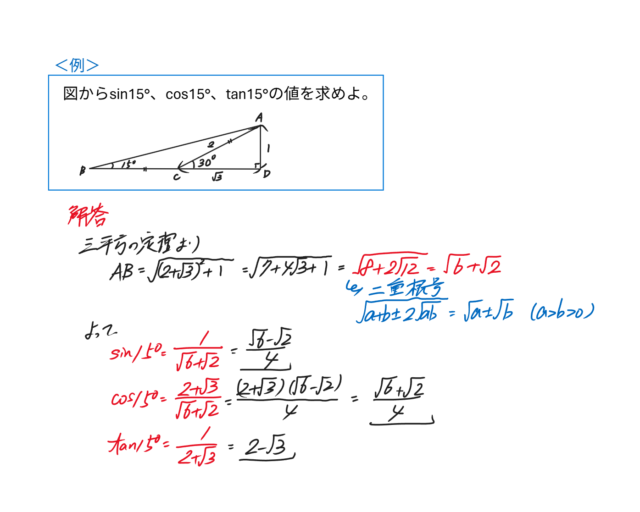 <例>
図からsin15°、cos15°、tan15°の値を求めよ。
A
2
1
B 15° C 30° D
√3
解答
三平方の定理より
AB=√((2+√3)²+1) =√(7+4√3+1) = √(8+2√12) = √6+√2
↳ 二重根号
√(a+b±2√ab) = √a±√b (a>b>0)
よって
sin15°= 1/(√6+√2) = (√6-√2)/4
cos15°= (2+√3)/(√6+√2) = (2+√3)(√6-√2)/4 = (√6+√2)/4
tan15°= 1/(2+√3) = 2-√3